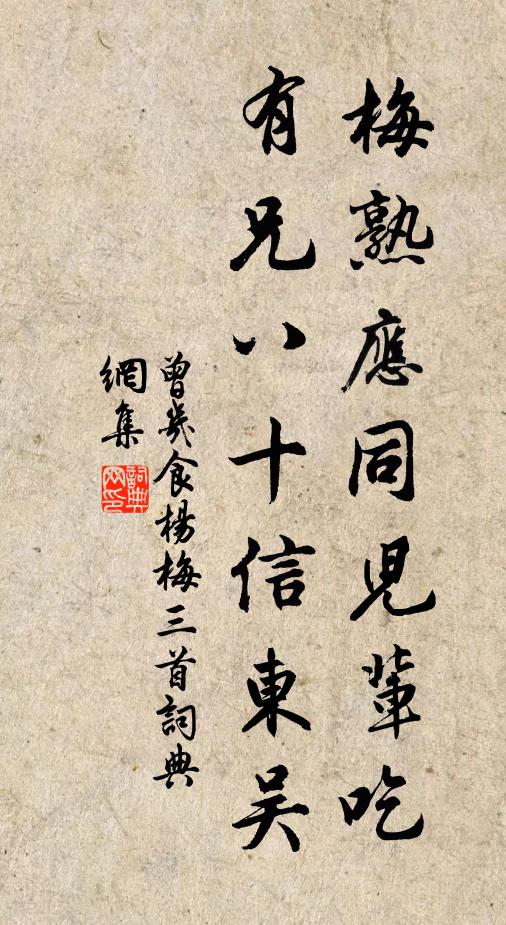 梅熟應同兒輩吃
有兄八十信東吴
曾幾食楊梅三首詞典
網集
詞典
网印